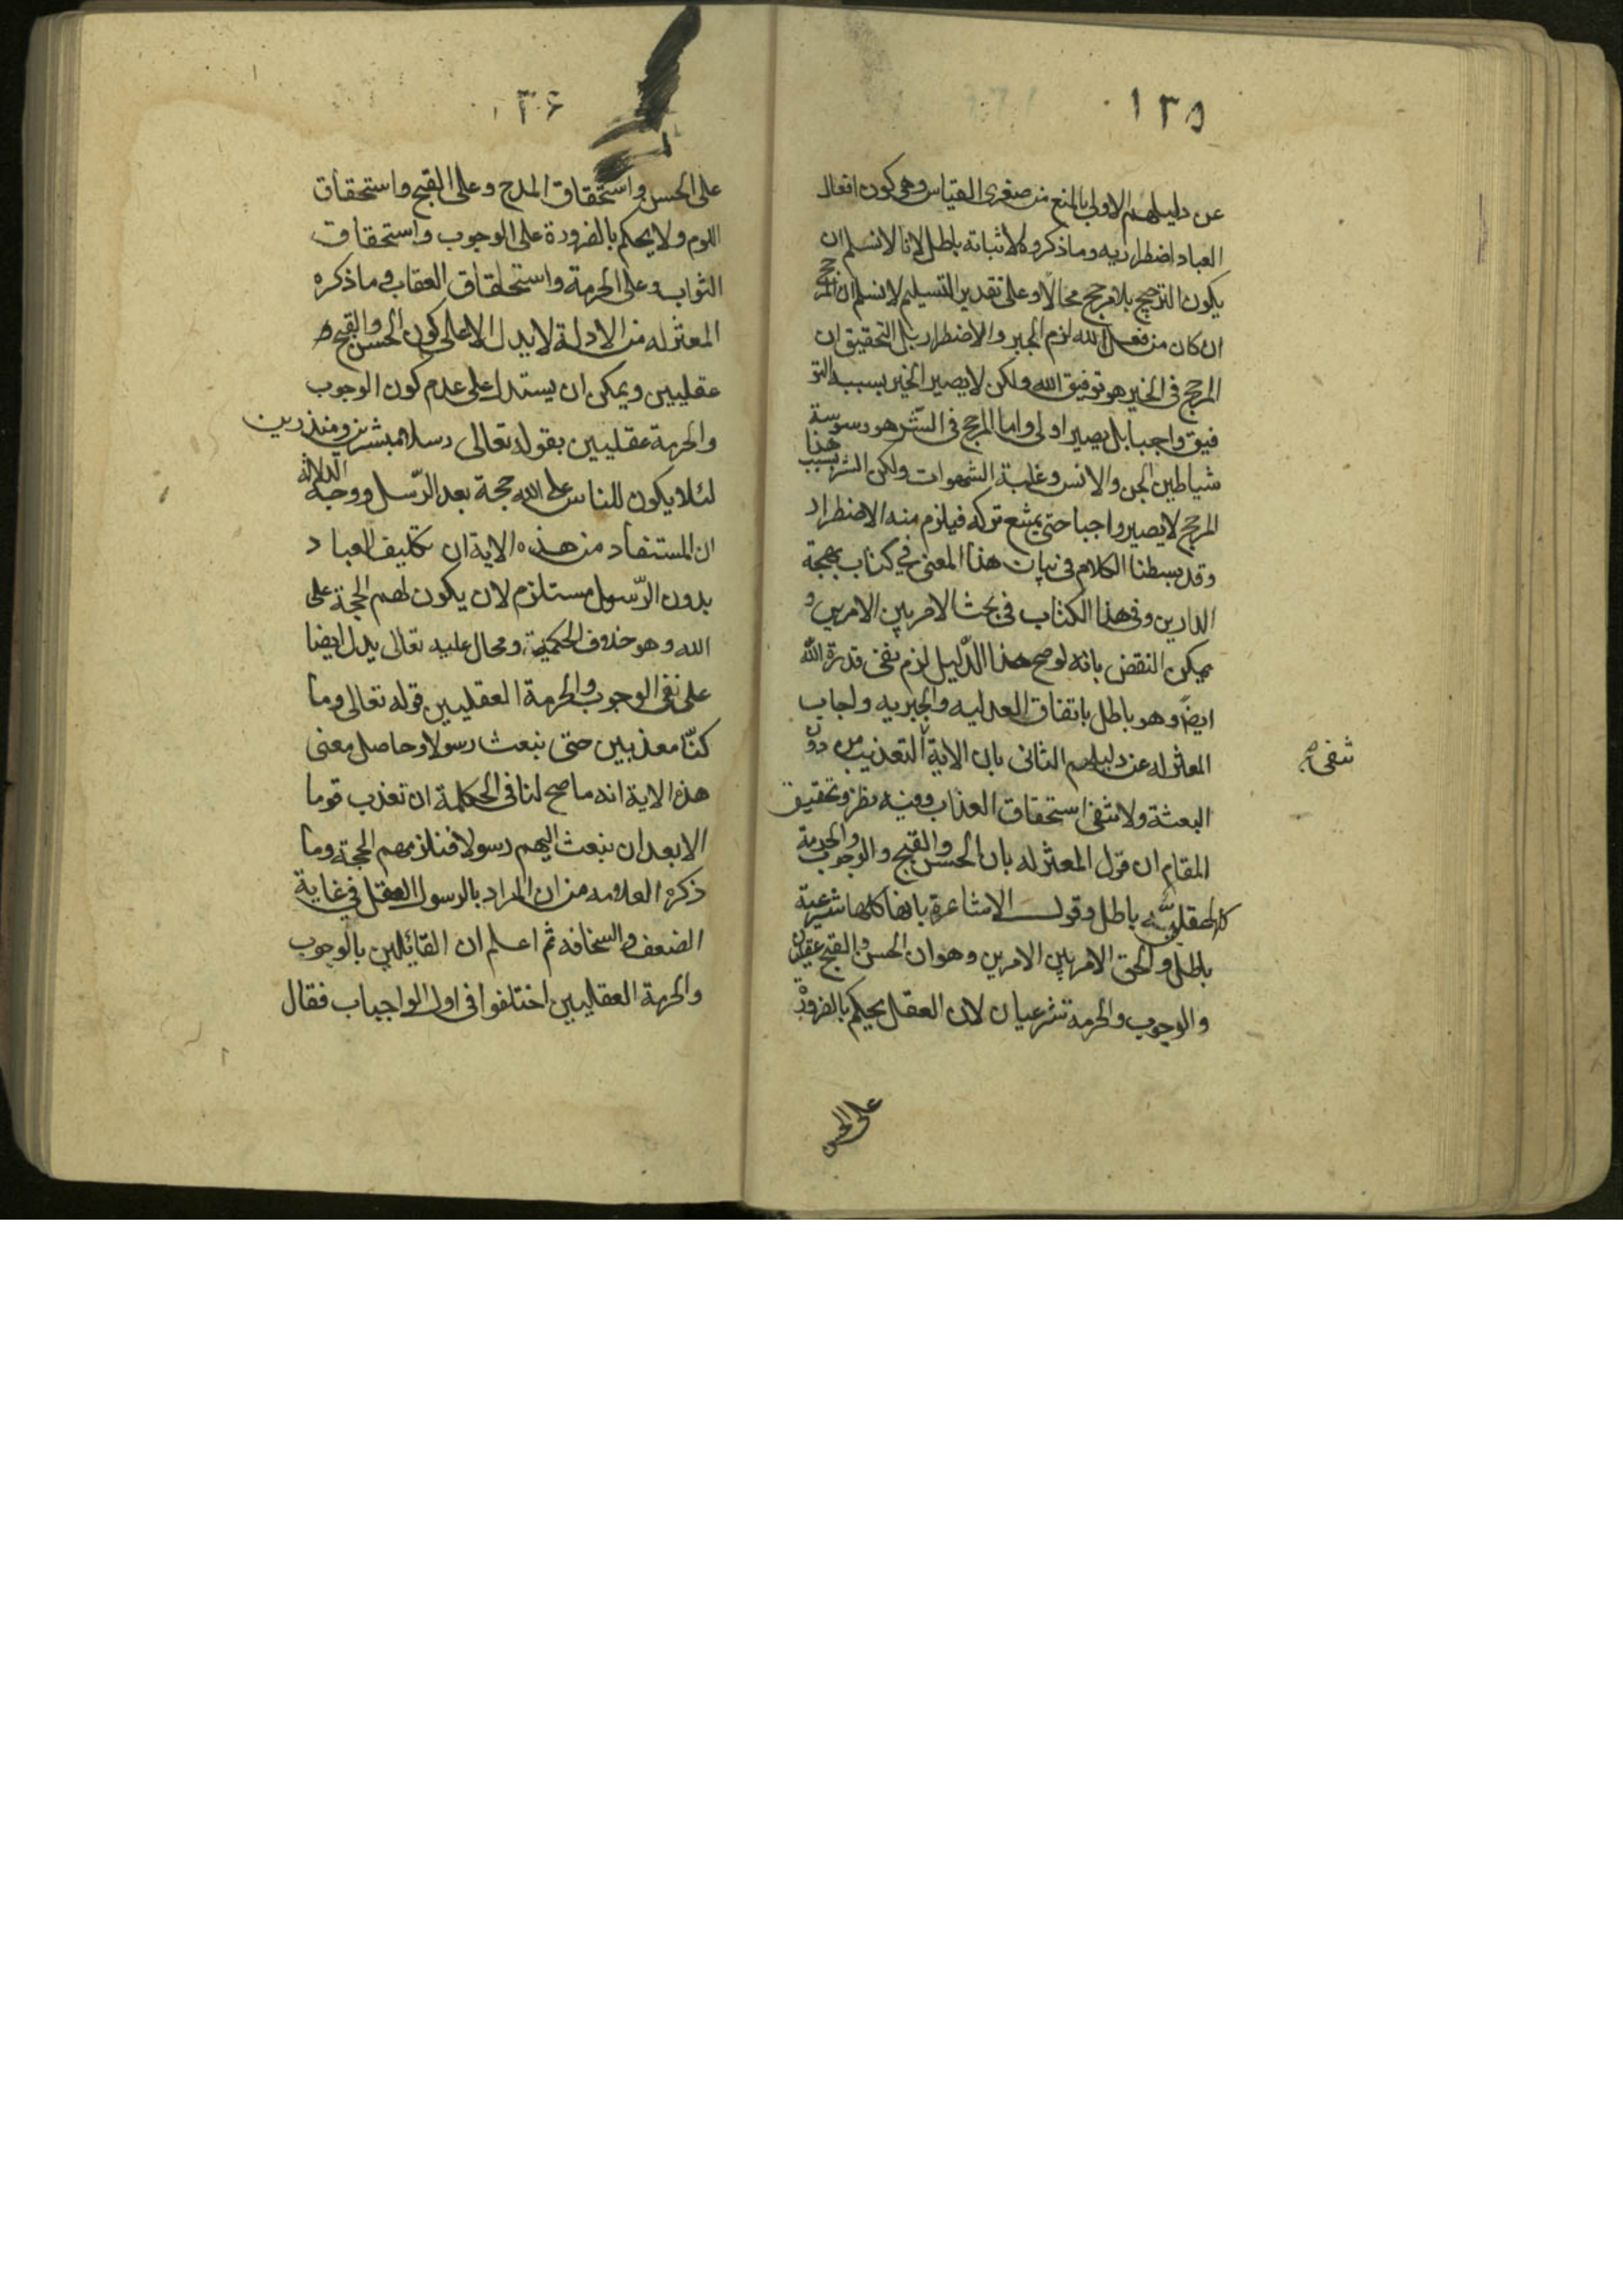 ١٣٥
عن دليلهم الاول بالمنع من صغرى القياس وهى كون افعال
العباد اضطراريه وما ذكروه لاثباته باطل لانا لا نسلم ان
يكون الترجيح بلا مرجح محالا وعلى تقدير التسليم لا نسلم ان المرجح
ان كان من فعل الله لزم الجبر والاضطرار بل التحقيق ان
المرجح فى الخير هو توفيق الله ولكن لا يصير الخير بسبب التو
فيق واجبا بل يصير اولى واما المرجح فى الشر هو وسوسة
شياطين الجن والانس وغلبة الشهوات ولكن الشر بسبب هذا
المرجح لا يصير واجبا حتى يمتنع تركه فيلزم منه الاضطرار
وقد بسطنا الكلام فى بيان هذا المعنى في كتاب بهجة
الدارين وفى هذا الكتاب فى بحث الامر بين الامرين و
يمكن النقض بانه لو صح هذا الدليل لزم نفى قدرة الله
ايضا وهو باطل باتفاق العدليه والجبريه واجاب
المعتزله عن دليلهم الثانى بان الاية التعذيب من دون
تنفى
البعثة ولا تنفى استحقاق العذاب وفيه نظر وتحقيق
المقام ان قول المعتزله بان الحسن والقبح والوجوب والحرمة
كلها عقليه باطل وقول الاشاعرة بانها كلها شرعية
باطل والحق الامر بين الامرين وهو ان الحسن والقبح عقليان
والوجوب والحرمة شرعيان لان العقل يحكم بالضرورة
على الحسن
١٣٦
على الحسن واستحقاق المدح وعلى القبح واستحقاق
اللوم ولا يحكم بالضرورة على الوجوب واستحقاق
الثواب وعلى الحرمة واستحقاق العقاب وما ذكره
المعتزله من الادلة لا يدل الا على كون الحسن والقبح
عقليين ويمكن ان يستدل على عدم كون الوجوب
والحرمة عقليين بقوله تعالى رسلا مبشرين ومنذرين
لئلا يكون للناس على الله حجة بعد الرّسل ووجه الدلالة
ان المستفاد من هذه الاية ان تكليف العباد
بدون الرّسول مستلزم لان يكون لهم الحجة على
الله وهو خلاف الحكمية ومحال عليه تعالى يدل ايضا
على نفى الوجوب والحرمة العقليين قوله تعالى وما
كنّا معذبين حتى نبعث رسولا وحاصل معنى
هذه الاية انه ما صح لنا فى الحكمة ان نعذب قوما
الا بعد ان نبعث اليهم رسولا فنلزمهم الحجة وما
ذكره العلامه من ان المراد بالرسول العقل في غاية
الضعف والسخافه ثم اعلم ان القائلين بالوجوب
والحرمة العقليين اختلفوا فى اول الواجبات فقال